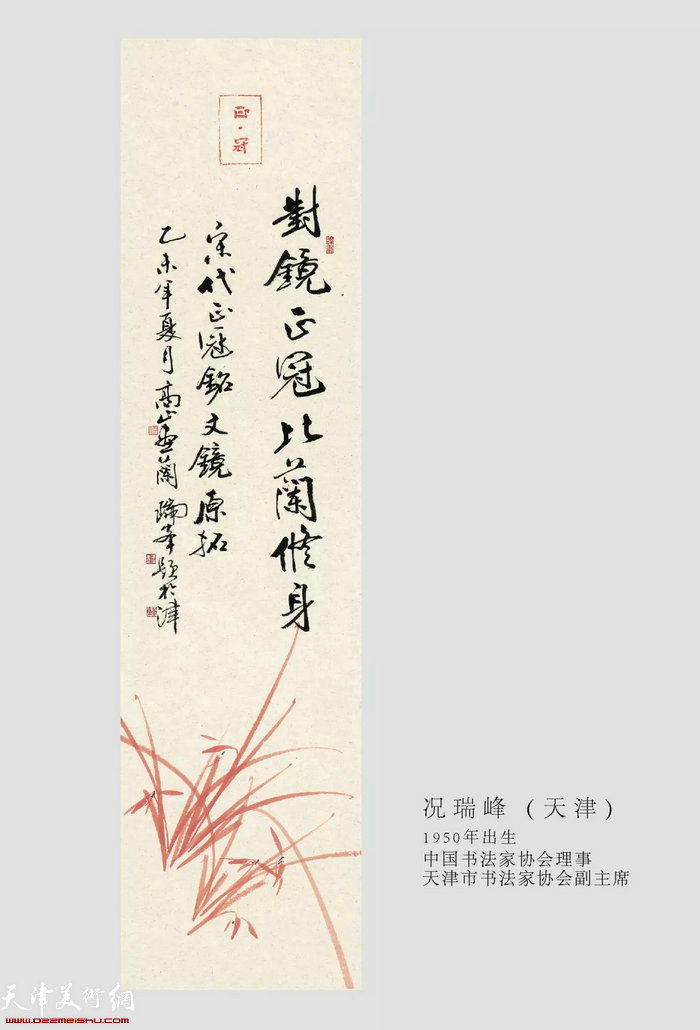 正·冠
對鏡正冠比蘭修身
宋代正冠銘文鏡原拓
乙未年夏月高山畫蘭瑞峯題於津
况瑞峰（天津）
1950年出生
中国书法家协会理事
天津市书法家协会副主席
天津美術網
www.022meishu.com